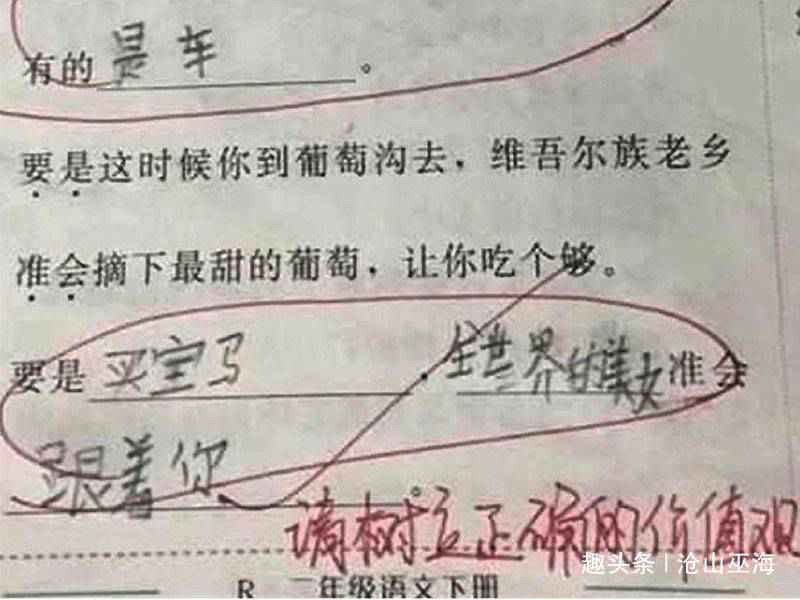 有的是车。
要是这时候你到葡萄沟去，维吾尔族老乡
准会摘下最甜的葡萄，让你吃个够。
要是买宝马，全世界的美女准会
跟着你。
请树立正确的价值观
趣头条 | 沧山巫海
R 二年级语文下册